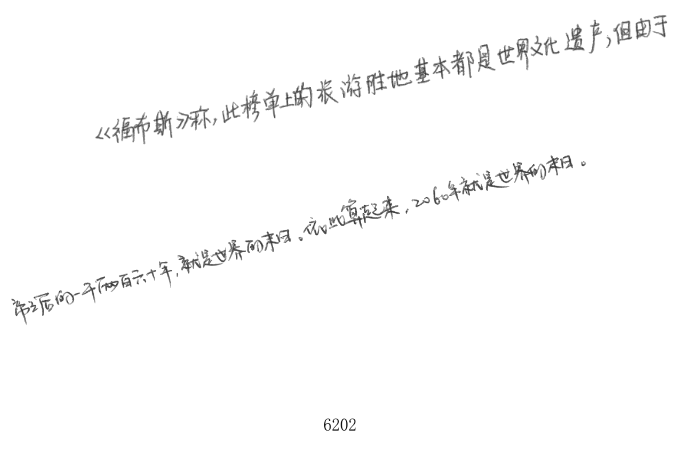 《福布斯》称，此榜单上的旅游胜地基本都是世界文化遗产，但由于
帝之后的一千两百六十年，就是世界的末日。依此算起来，2060年就是世界的末日。
6202